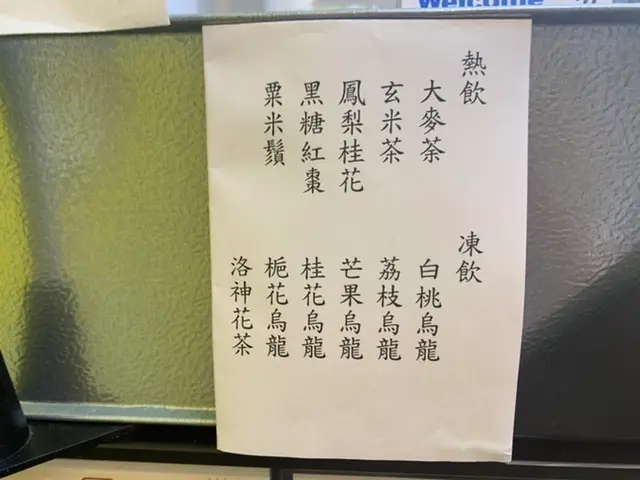 Welcome
熱飲
大麥茶
玄米茶
鳳梨桂花
黑糖紅棗
粟米鬚
凍飲
白桃烏龍
荔枝烏龍
芒果烏龍
桂花烏龍
梔花烏龍
洛神花茶